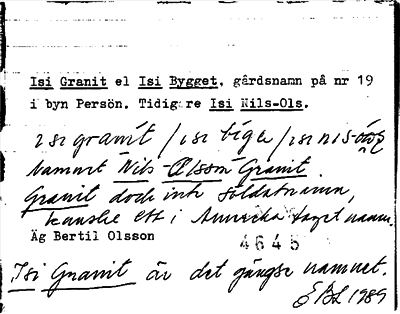 Isi Granit el Isi Bygget, gårdsnamn på nr 19
i byn Persön. Tidigare Isi Nils-Ols.
isi granit / isi bige / isi nis-
namnet Nils Olsson Granit.
Granit dock inte soldatnamn,
kanske ett i Amerika taget namn.
Äg Bertil Olsson
4645
Isi Granit är det gängse namnet.
EBL 1989